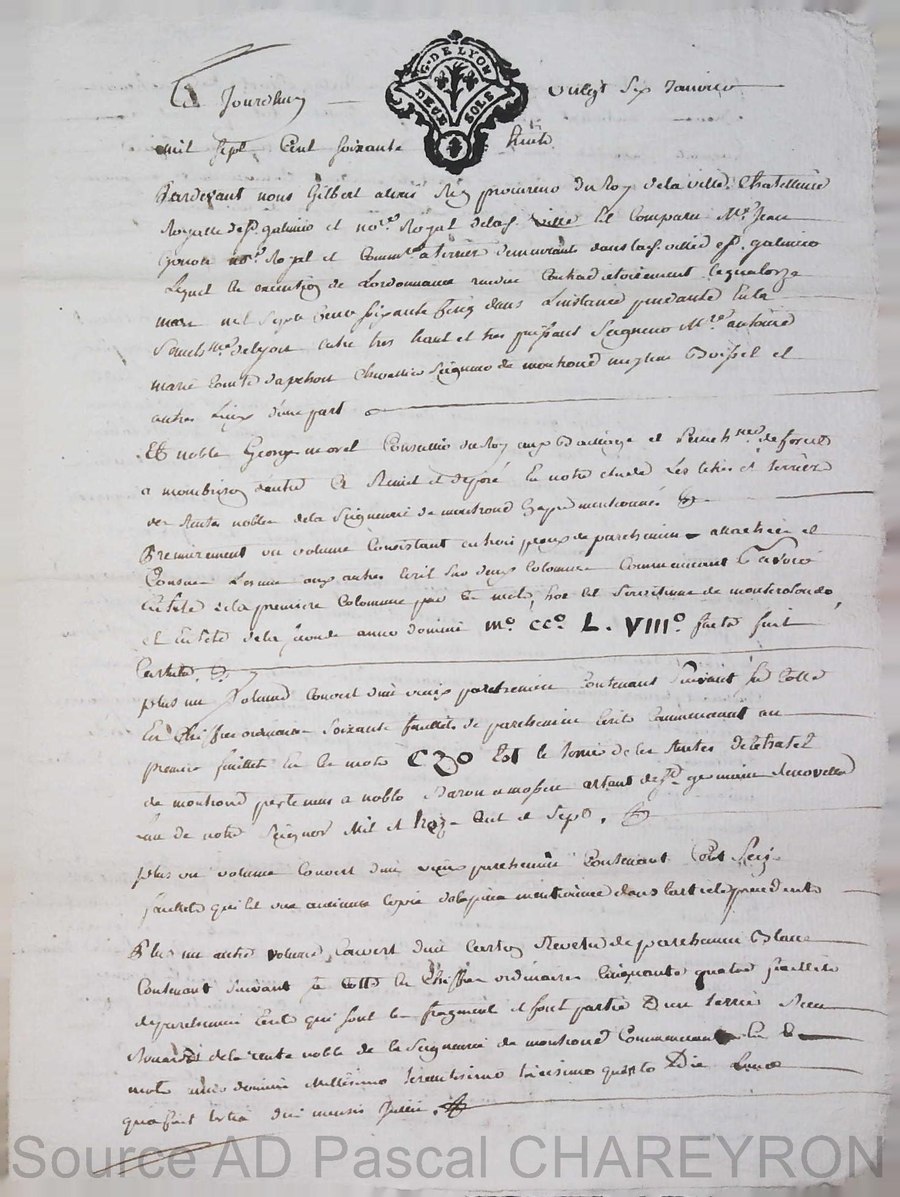 G. DE LYON
DEUX SOLS
Jourdhuy vingt six Janvier
mil sept Cent soixante huit
Pardevant nous Gilbert alexis procureur du Roy de la ville Chatellenie
Royalle de st. galmier et nore. Royal de lad. ville Est Comparu Mre. Jean
nore. Royal et Commre. a terrier demeurant dans lad. ville de st. galmier
Lequel En execution de Lordonnance rendue Contradictoirement le quatorze
mars mil Sept Cent soixante Cinq dans Linstance pendante En la
Senechée de Lyon entre tres haut et tres puissant Seigneur Mre. antoine
marie Comte dapchon Chevallier Seigneur de montrond Boisset et
autres Lieux d'une part
Et noble George morel Conseiller du Roy aux Bailliage et Senechée de forest
a montbrison dautre a Remis et deposé En notre etude Les titres et terriers
des Rentes nobles de la Seigneurie de montrond Cy apres mentionnés
Premierement un volume Consistant en trois peaux de parchemin attachées et
Cousues Lesune aux autres Ecrit sur deux Colommes Commencant
En tete de la premiere Colomme par Ce mots, hoc est Servitium de monterotondo,
et En tete de la seconde anno domini mo. cco. L. VIIIo. facta fuit
plus un volume Couvert d'un vieux parchemin Contenant suivant sa Cotte
En Chiffres ordinaires soixante feuillets de parchemin Ecrits Commencant au
premier feuillet En Ces mots Czo Est le
de montrond noble Baron artaut de st. germain
de notre Seignor Mil et troy Cent et Sept.
plus un volume Couvert d'un vieux parchemin Contenant Cent Seize
feuillets qui Est une ancienne Copie de la piece mentionnée dans Larticle precedent
Plus un autre volume, Couvert d'un Carton Revetu de parchemin Blanc
Contenant suivant sa Cotte En Chiffres ordinaires Cinquante quatre feuillets
de parchemin Ecrits qui sont Un fragment et font partie D'un terrier
de la rente noble de la Seigneurie de montrond Commencant En
mots anno domini Millesimo trecentisimo tricesimo quarto Die Lune
qua fuit tertia dies mensis Julii.
Source AD Pascal CHAREYRON